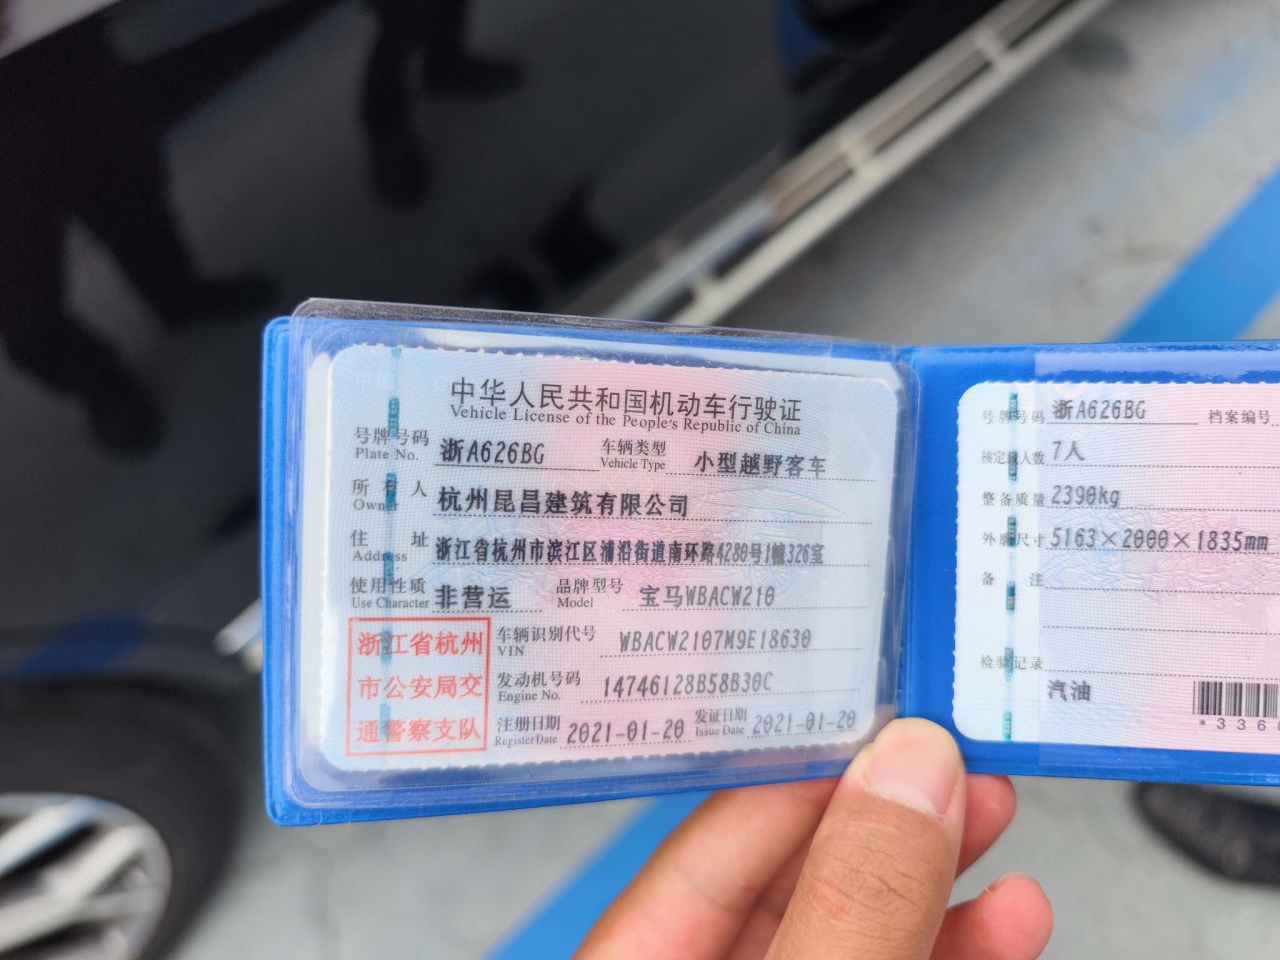 中华人民共和国机动车行驶证
Vehicle License of the People's Republic of China
号牌号码 浙A626BG 车辆类型 小型越野客车
Plate No. Vehicle Type
所有人 杭州昆昌建筑有限公司
Owner
住址 浙江省杭州市滨江区浦沿街道南环路4280号1幢326室
Address
使用性质 非营运 品牌型号 宝马WBACW210
Use Character Model
浙江省杭州
市公安局交
通警察支队
车辆识别代号 WBACW2107M9E18630
VIN
发动机号码 14746128B58B30C
Engine No.
注册日期 2021-01-20 发证日期 2021-01-20
Register Date Issue Date
号牌号码 浙A626BG 档案编号
核定载人数 7人
整备质量 2390kg
外廓尺寸 5163×2000×1835mm
备注
检验记录
汽油
*336